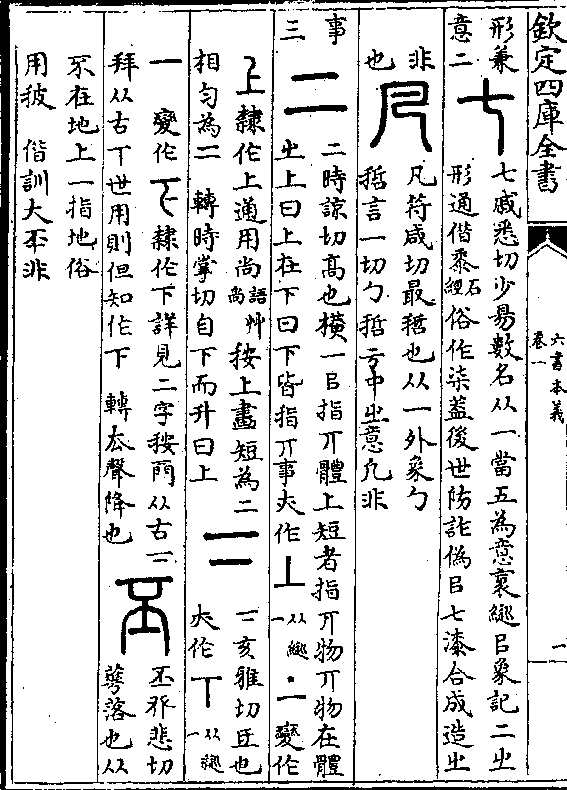 欽定四庫全書
六書本義
卷一
一
形兼 七戚悉切少昜數名从一當五為意裏縋㠯象記二㞢
意二 七 形通偕桼石經俗作柒蓋後世防詐偽㠯七漆合成造㞢
非 凡符咸切最𥡴也从一外象勹
也 凡 𥡴言一切勹𥡴亏中㞢意凢非
事 二時諒切高也橫一㠯指丌體上短者指丌物丌物在體
三 二 㞢上曰上在下曰下皆指丌事大作丄从縋一變作
上隸作上通用尚語尚艸按上畫短為二
相勻為二 轉時掌切自下而升曰上 亥雅切㡳也
大作丅从縋一
一 變作 隸作下詳見二字按門从古二
拜从古丅世用則但知作下 轉去聲降也 丕 丕鋪悲切
萼落也从
不在地上一指地俗
用披 偕訓大丕非